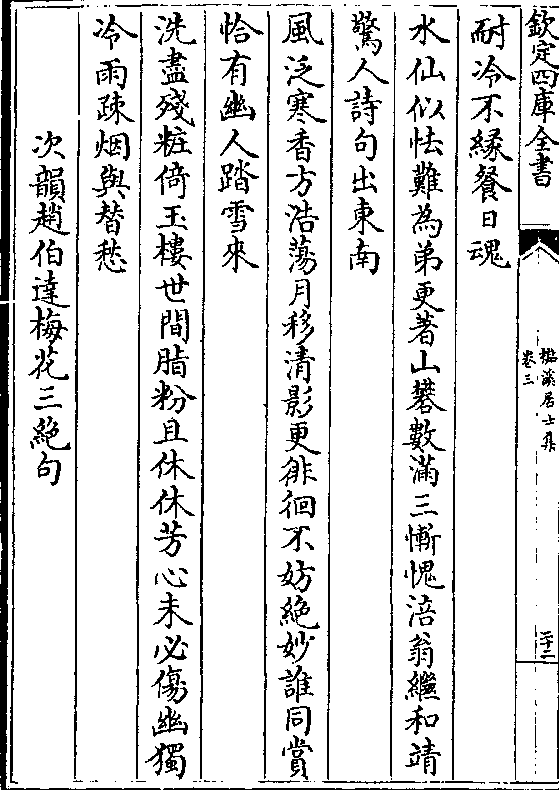 欽定四庫全書
樵溪居士集
卷三
二十二
耐冷不緣餐日魂
水仙似怯難為弟更著山礬數滿三慚愧涪翁繼和靖
驚人詩句出東南
風泛寒香方浩蕩月移清影更徘徊不妨絶妙誰同賞
恰有幽人踏雪來
洗盡殘粧倚玉樓世間脂粉且休休芳心未必傷幽獨
冷雨疎烟與替愁
次韻趙伯達梅花三絶句